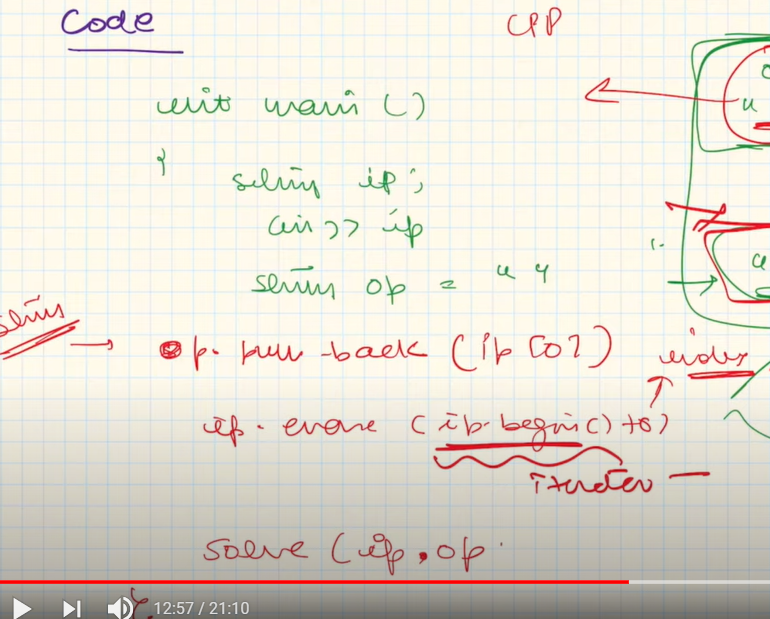 Code
CPP
int main ()
{
string ip;
cin >> ip
string op = " "
string → op. push-back (ip [0])
index
ip. erase (ip.begin() + 0)
iterator
solve (ip, op.
12:57 / 21:10